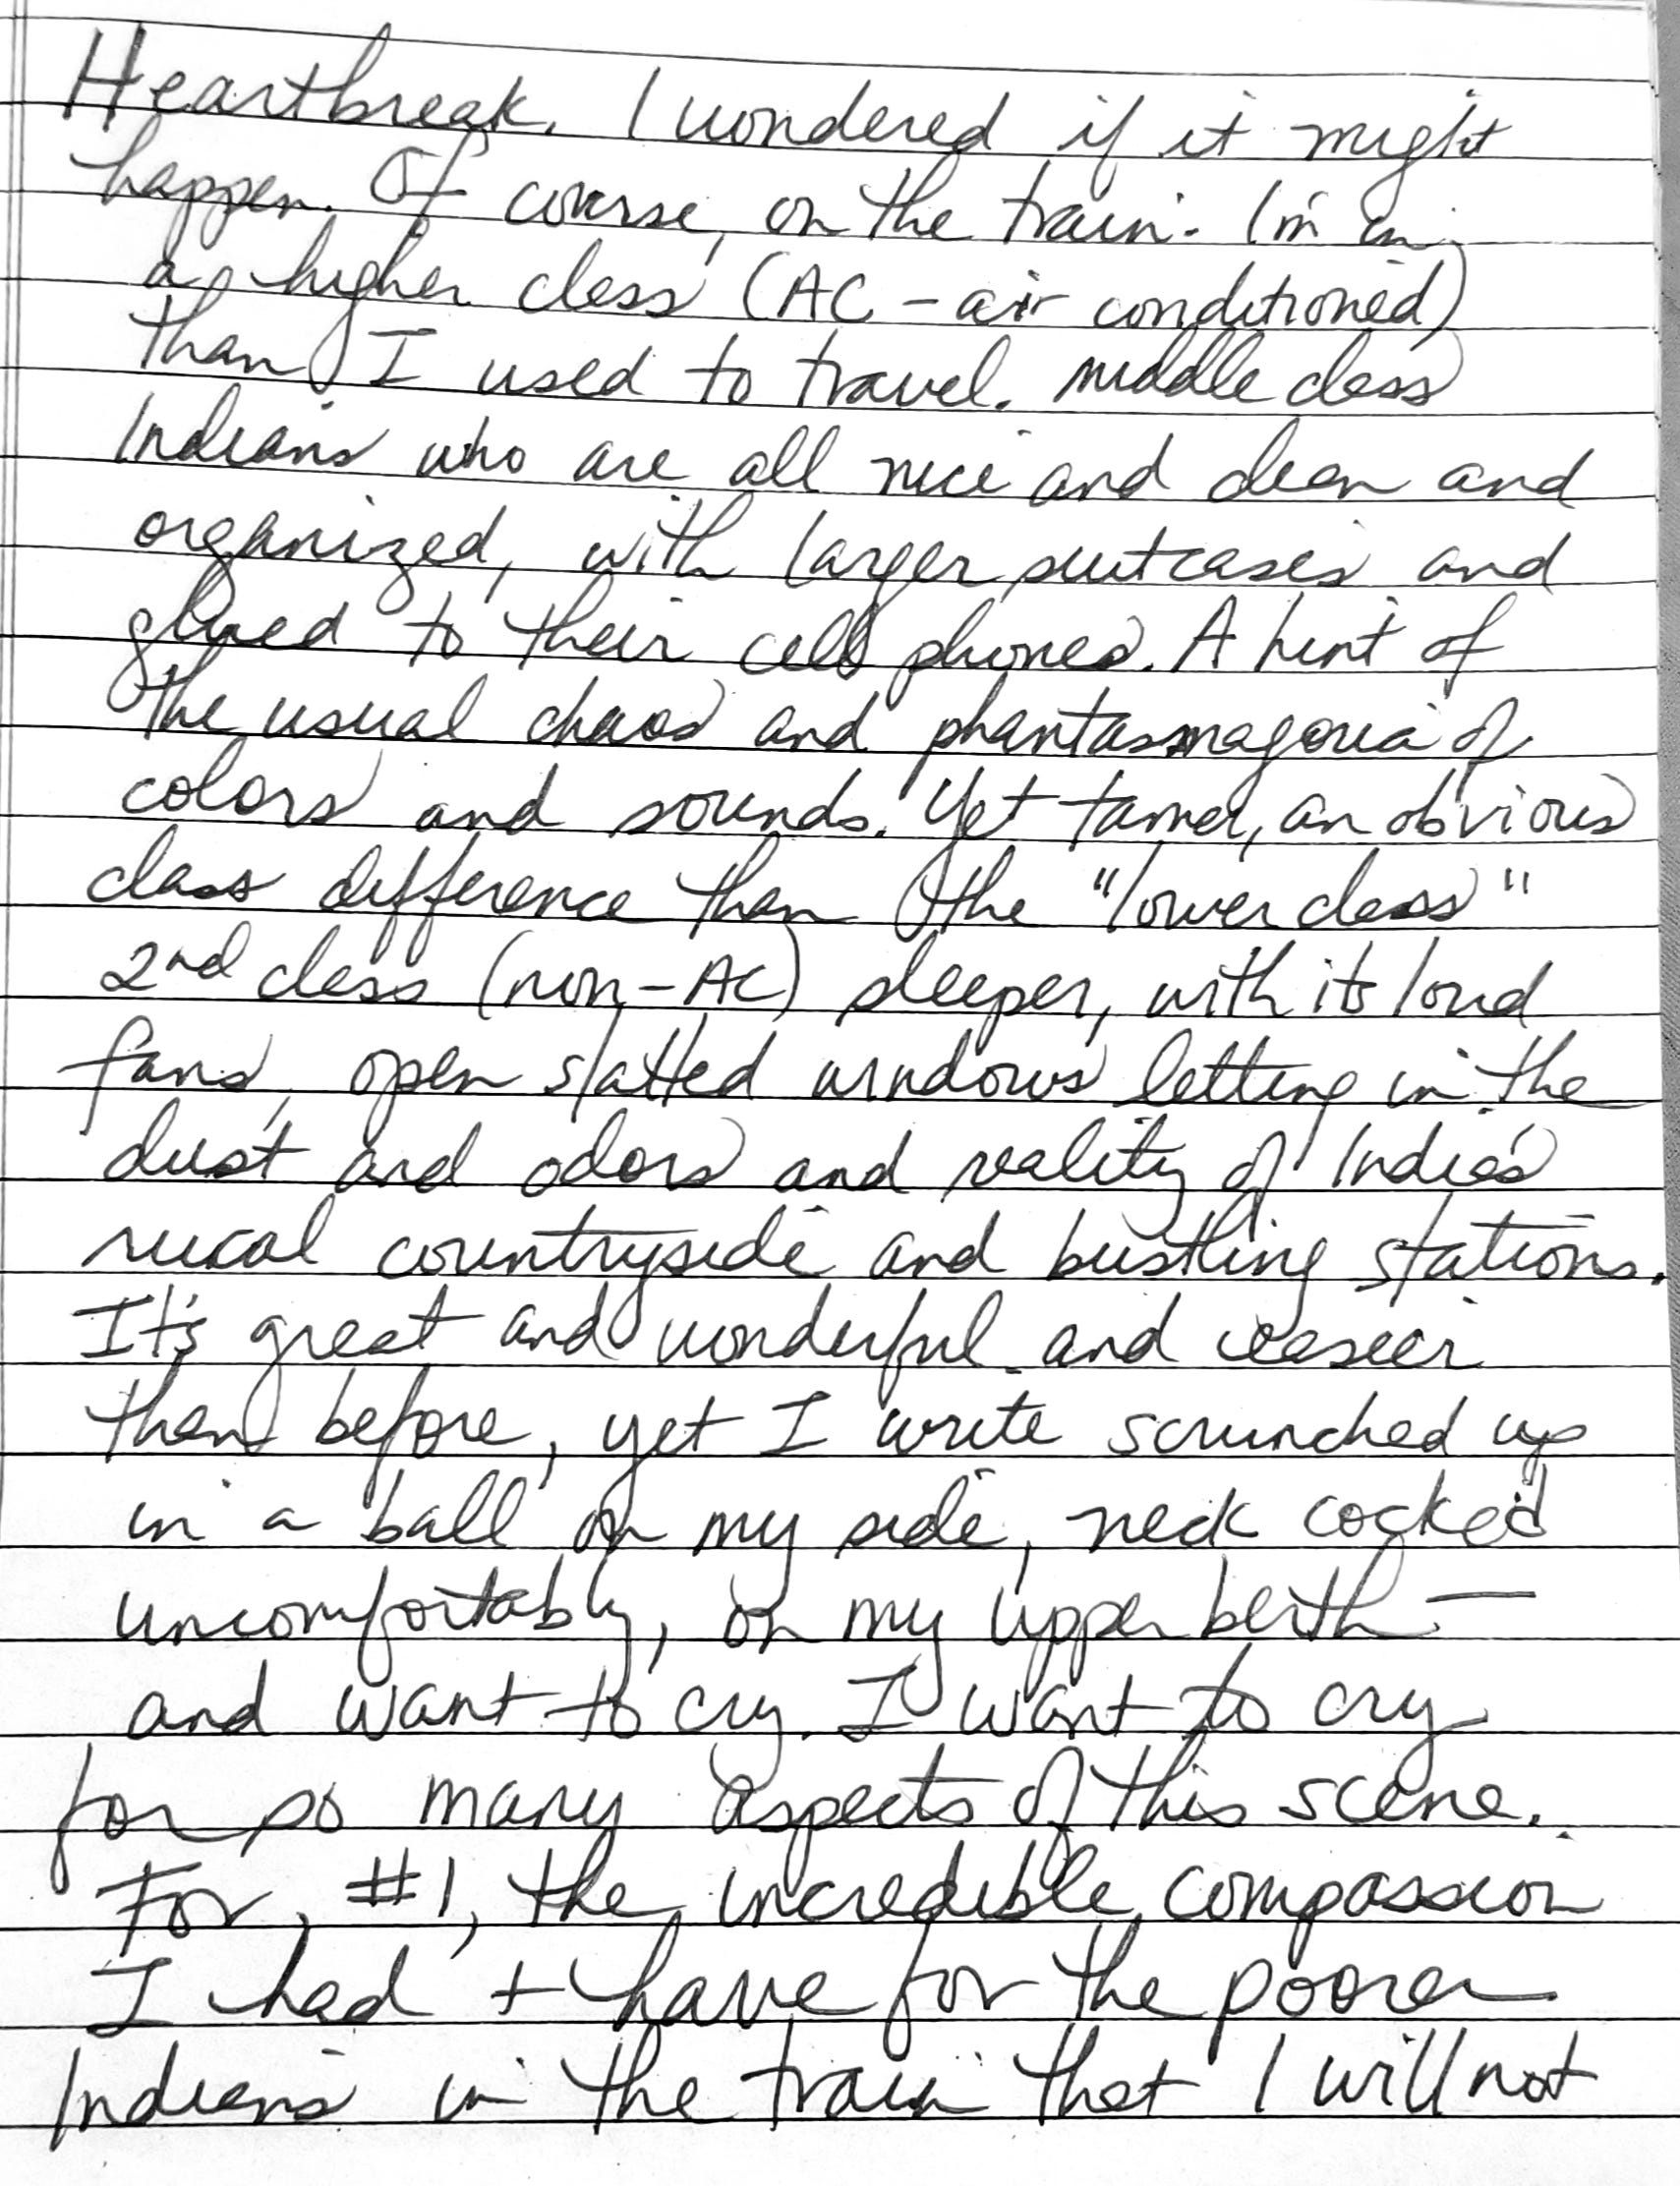 Heartbreak. I wondered if it might
happen. Of course, on the train. I'm in
a higher class (AC - air conditioned)
than I used to travel. middle class
Indians who are all nice and clean and
organized, with larger suitcases and
glued to their cell phones. A hint of
the usual chaos and phantasmagoria of
colors and sounds. Yet tamer, an obvious
class difference than the "lower class"
2nd class (non-AC) sleeper, with its loud
fans, open slatted windows letting in the
dust and odors and reality of India's
rural countryside and bustling stations.
It's great and wonderful and easier
than before, yet I write scrunched up
in a ball on my side, neck cocked
uncomfortably, on my upper berth —
and want to cry. I want to cry
for so many aspects of this scene.
For, #1, the incredible compassion
I had + have for the poorer
Indians in the train that I will not